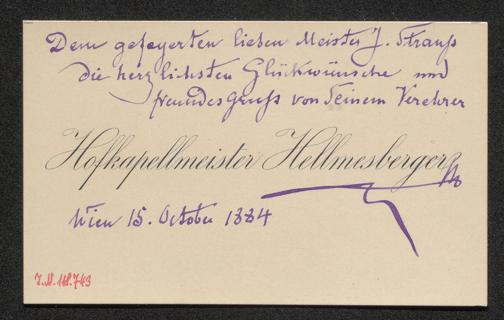 Dem gefeyerten lieben Meister J. Strauß
die herzlichsten Glückwünsche und
freundesgruß von Seinem Verehrer
Hofkapellmeister Hellmesberger
Wien 15. October 1884